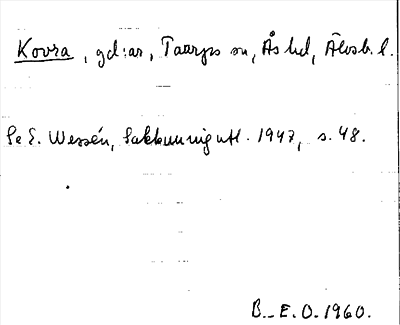 Kovra, gd:ar, Taarps sn, Ås hd, Älvsb. l.
Se E. Wessén, Sakkunnigutl. 1947, s. 48.
B.-E. O. 1960.